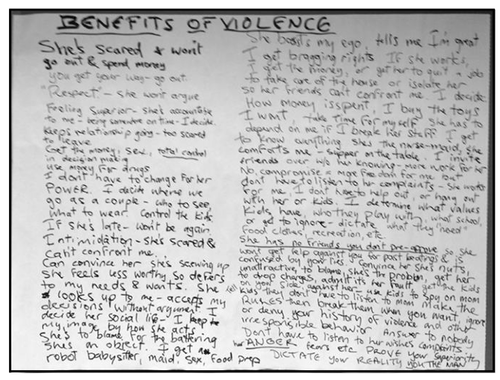 BENEFITS OF VIOLENCE
She's scared & won't
go out & spend money
you get your way - go out
"Respect" - she won't argue
Feeling Superior - she's accountable
to me - being on time - I decide.
Keeps relationship going - too scared
to leave
Get the money, sex, total control
in decision making
use money for drugs
I don't have to change for her
POWER. I decide where we
go as a couple - who to see,
what to wear. control the kids
If she's late - won't be again
Intimidation - she's scared &
can't confront me.
Can convince her she's screwing up
She feels less worthy so defers
to my needs & wants. She
looks up to me - accepts my
decisions without argument I
decide her social life - I keep
my image by how she acts
She's to blame for the battering
She's an object. I get a
robot babysitter, maid, sex, food prep
She boosts my ego, tells me I'm great
I get bragging rights If she works,
I get the money, or get her to quit a job
to take care of the house or isolate her
so her friends can't confront me. I decide
How money is spent. I buy the toys
I want, take time for myself She has to
depend on me if I break her stuff I get
to know everything she's the nurse-maid, she
comforts me - supper on the table. I invite
friends over w/o her knowing - more work for her
No compromise = more freedom for me but
don't have to listen to her complaints - she works
For me. I don't have to help out or hang out
with her or kids. I determine what values
Kids have, who they play with, what school,
or to ignore - dictate what they need
food clothes, recreation etc.
She has no friends you don't pre-approve so she
won't get help against you for past beatings & is
confused by your lies Convince her she's nuts,
unattractive, to blame, she's the problem get her
to drop charges, admit it's her fault, get the kids
on your side against her - use kids to spy on mom
so they don't have to listen to mom Make the
RULES then break them when you want, ignore
or deny your history of violence and other
irresponsible behavior Answer to nobody
Don't have to listen to her wishes complaints
ANGER fears etc. PROVE your Superiority
DICTATE your REALITY you're THE MAN